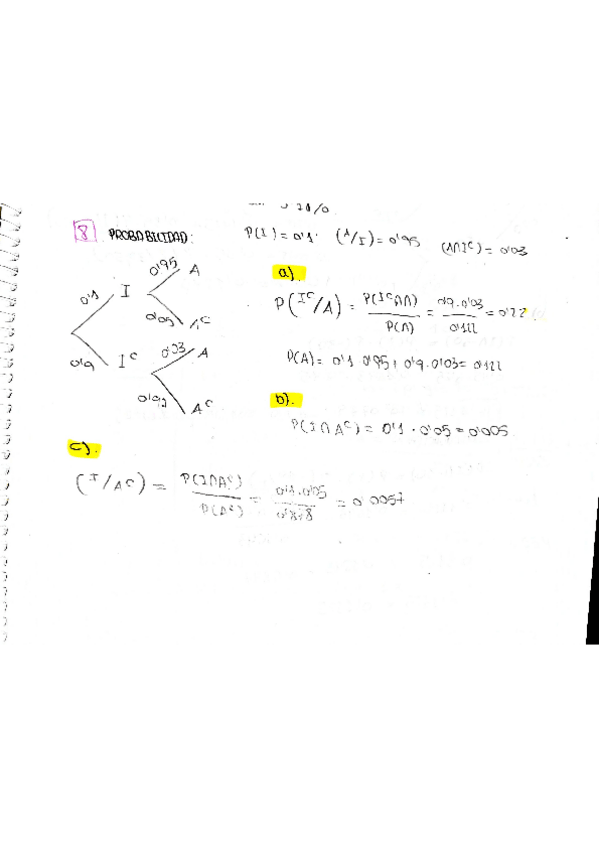 8 PROBABILIDAD: P(I) = 0'1 · (A/I) = 0'95 (A∩I^C) = 0'03
0'1 I 0'95 A
0'05 A^C
0'9 I^C 0'03 A
A^C
a).
P(I^C/A) = P(I^C∩A) / P(A) = 0'9·0'03 / 0'122 = 0'22
P(A) = 0'1 0'95 + 0'9·0'03 = 0'122
b).
P(I∩A^C) = 0'1 · 0'05 = 0'005
c).
(I/A^C) = P(I∩A^C) / P(A^C) = 0'1·0'05 / 0'878 = 0'0057